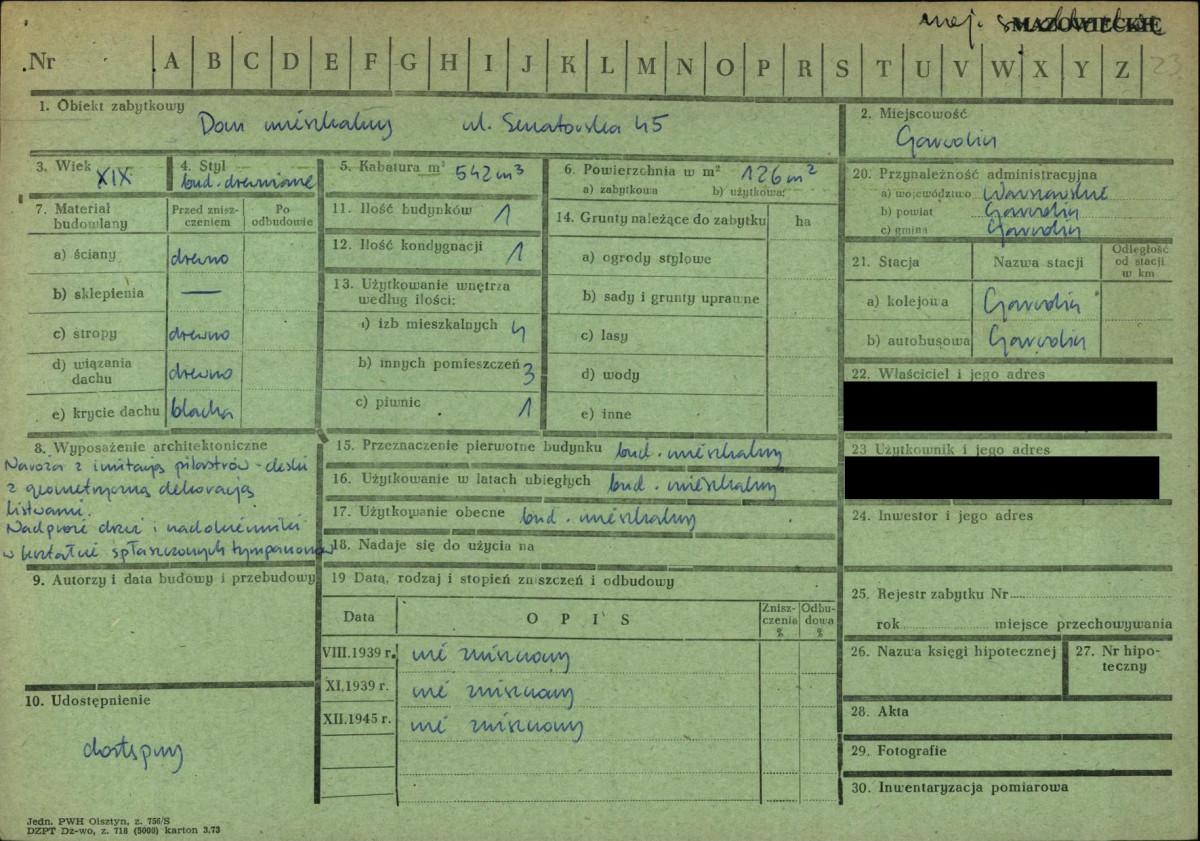 woj. siedleckie
MAZOWIECKIE
Nr A B C D E F G H I J K L M N O P R S T U V W X Y Z 23
1. Obiekt zabytkowy
Dom mieszkalny ul. Senatorska 45
2. Miejscowość
Garwolin
3. Wiek
XIX
4. Styl
bud. drewniane
5. Kabatura m³ 542 m³
6. Powierzchnia w m² 126 m²
a) zabytkowa b) użytkowa:
20. Przynależność administracyjna
a) województwo Warszawskie
b) powiat Garwolin
c) gmina Garwolin
7. Materiał budowlany
Przed zniszczeniem
Po odbudowie
a) ściany drewno
b) sklepienia —
c) stropy drewno
d) wiązania dachu drewno
e) krycie dachu blacha
11. Ilość budynków 1
12. Ilość kondygnacji 1
13. Użytkowanie wnętrza
według ilości:
a) izb mieszkalnych 4
b) innych pomieszczeń 3
c) piwnic 1
14. Grunty należące do zabytku ha
a) ogrody stylowe
b) sady i grunty uprawne
c) lasy
d) wody
e) inne
21. Stacja Nazwa stacji Odległość od stacji w km
a) kolejowa Garwolin
b) autobusowa Garwolin
22. Właściciel i jego adres
23 Użytkownik i jego adres
24. Inwestor i jego adres
8. Wyposażenie architektoniczne
Naroża z imitacją pilastrów - deski
z geometryczną dekoracją
listwami.
Nadproże drzwi i nadokienniki
w kształcie spłaszczonych tympanonów
15. Przeznaczenie pierwotne budynku bud. mieszkalny
16. Użytkowanie w latach ubiegłych bud. mieszkalny
17. Użytkowanie obecne bud. mieszkalny
18. Nadaje się do użycia na
9. Autorzy i data budowy i przebudowy
10. Udostępnienie
dostępny
19 Data, rodzaj i stopień zniszczeń i odbudowy
Data OPIS Zniszczenia % Odbudowa %
VIII.1939 r. nie zniszczony
XI.1939 r. nie zniszczony
XII.1945 r. nie zniszczony
25. Rejestr zabytku Nr
rok miejsce przechowywania
26. Nazwa księgi hipotecznej
27. Nr hipoteczny
28. Akta
29. Fotografie
30. Inwentaryzacja pomiarowa
Jedn. PWH Olsztyn, z. 756/S
DZPT Dż-wo, z. 718 (5000) karton 3.73